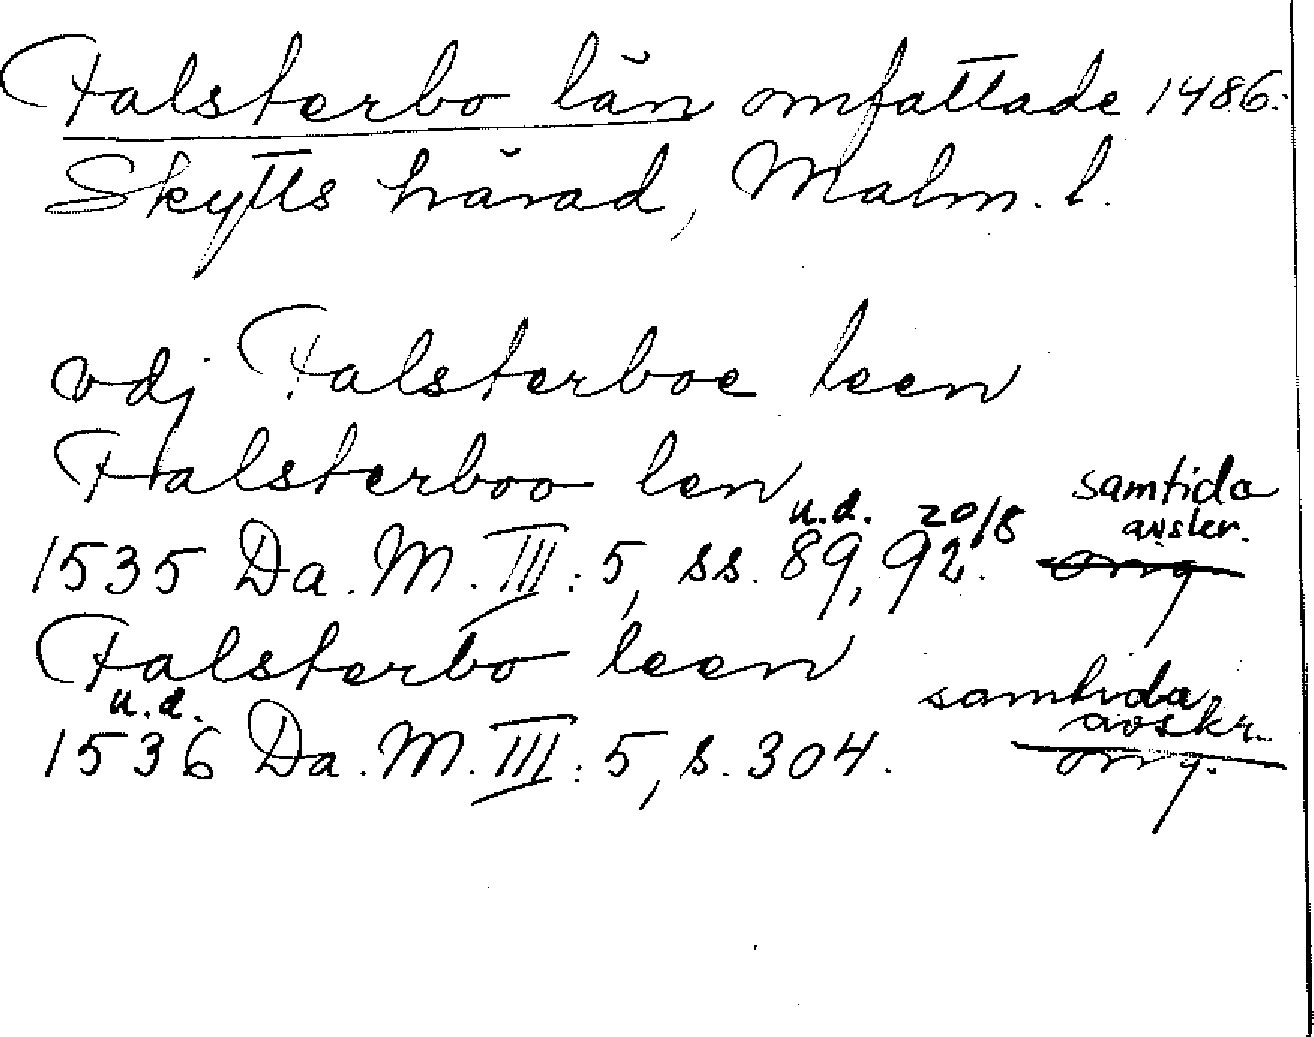 Falsterbo län omfattade 1486:
Skytts härad, Malm. l.
vdj Falsterboe leen
Falsterboo len
samtida
u.d. 20/8 avskr.
1535 Da. M. III: 5, ss. 89, 92. orig
Falsterbo leen
u.d. samtida
avskr.
1536 Da. M. III: 5, s. 304. orig.